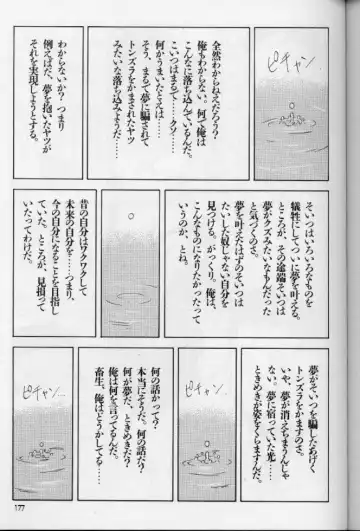 ピチャン
全然わからねえだろう?
俺もわからない。何で俺は
こんなに落ち込んでいるんだ。
こいつはまるで……クソ
何かうまいたとえは……
そう、まるで夢に騙されて
トンズラをかまされたヤツ
みたいな落ち込みようだ……
わからないか? つまり
例えばだ、夢を抱いたヤツが
それを実現しようとする。
そいつはいろいろなものを
犠牲にしてついに夢を叶える。
ところが、その途端そいつは
夢がクズみたいなもんだった
と気づくのさ。
夢を叶えたはずのそいつは
たいした奴じゃない自分を
見つける。がっくり。俺は、
こんなものになりたかったって
いうのか、とね。
昔の自分はワクワクして
未来の自分を……つまり、
今の自分になることを目指し
ていた。ところが、見損って
いたってわけだ。
夢がそいつを騙したあげく
トンズラをかますのさ。
いや、夢が消えちまうんじゃ
ない。夢に宿っていた光……
ときめきが姿をくらますんだ。
ピチャン
何の話かって?
本当にそうだ。何の話だ?
何が夢だ、ときめきだ?
俺は何を言ってるんだ。
畜生、俺はどうかしてる……
ピチャン…
177